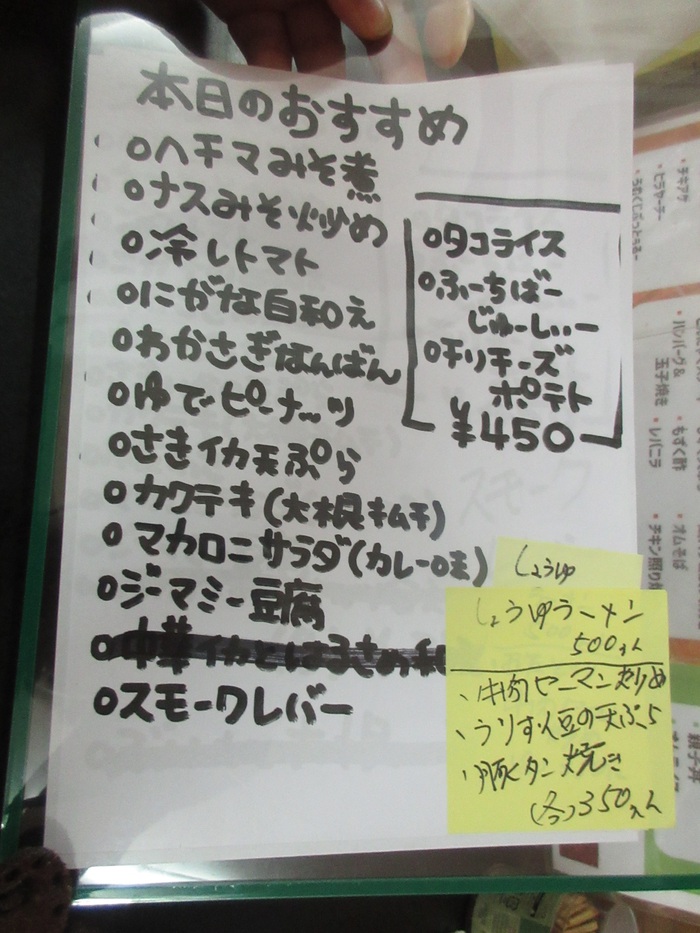 本日のおすすめ
○ヘチマみそ煮
○ナスみそ炒め
○冷しトマト
○にがな白和え
○わかさぎなんばん
○ゆでピーナッツ
○さきイカ天ぷら
○カクテキ(大根キムチ)
○マカロニサラダ(カレー味)
○ジーマミー豆腐
○中華イカとはるさめ
○スモークレバー
○タコライス
○ふーちばー
じゅーしぃー
○チリチーズ
ポテト
¥450
しょうゆ
しょうゆラーメン
500
、牛肉ピーマン炒め
、うりずん豆の天ぷら
、豚タン焼き
(各)350
チキアゲ
・ヒラヤーチー
・ハンバーグ&
玉子焼き
・レバニラ
・もずく酢
・オムそば
・チキン照り焼